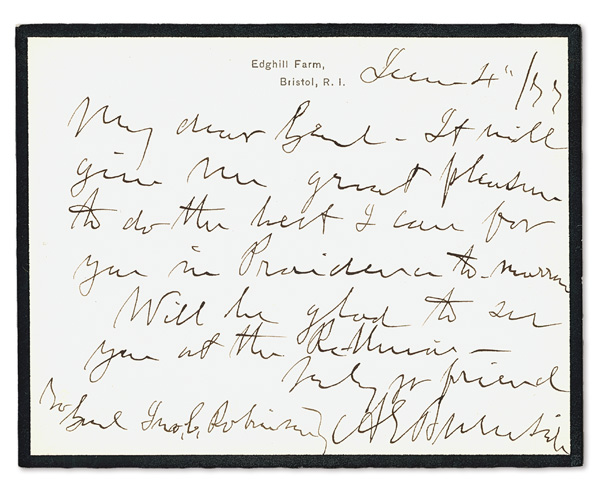 Edghill Farm,
Bristol, R. I.
June 4" /77
My dear Genl - It will
give me great pleasure
to do the best I can for
you in Providence to-morrow
Will be glad to see
you at the
Truly yr friend
To Genl Jno. C. Robinson
A E Burnside